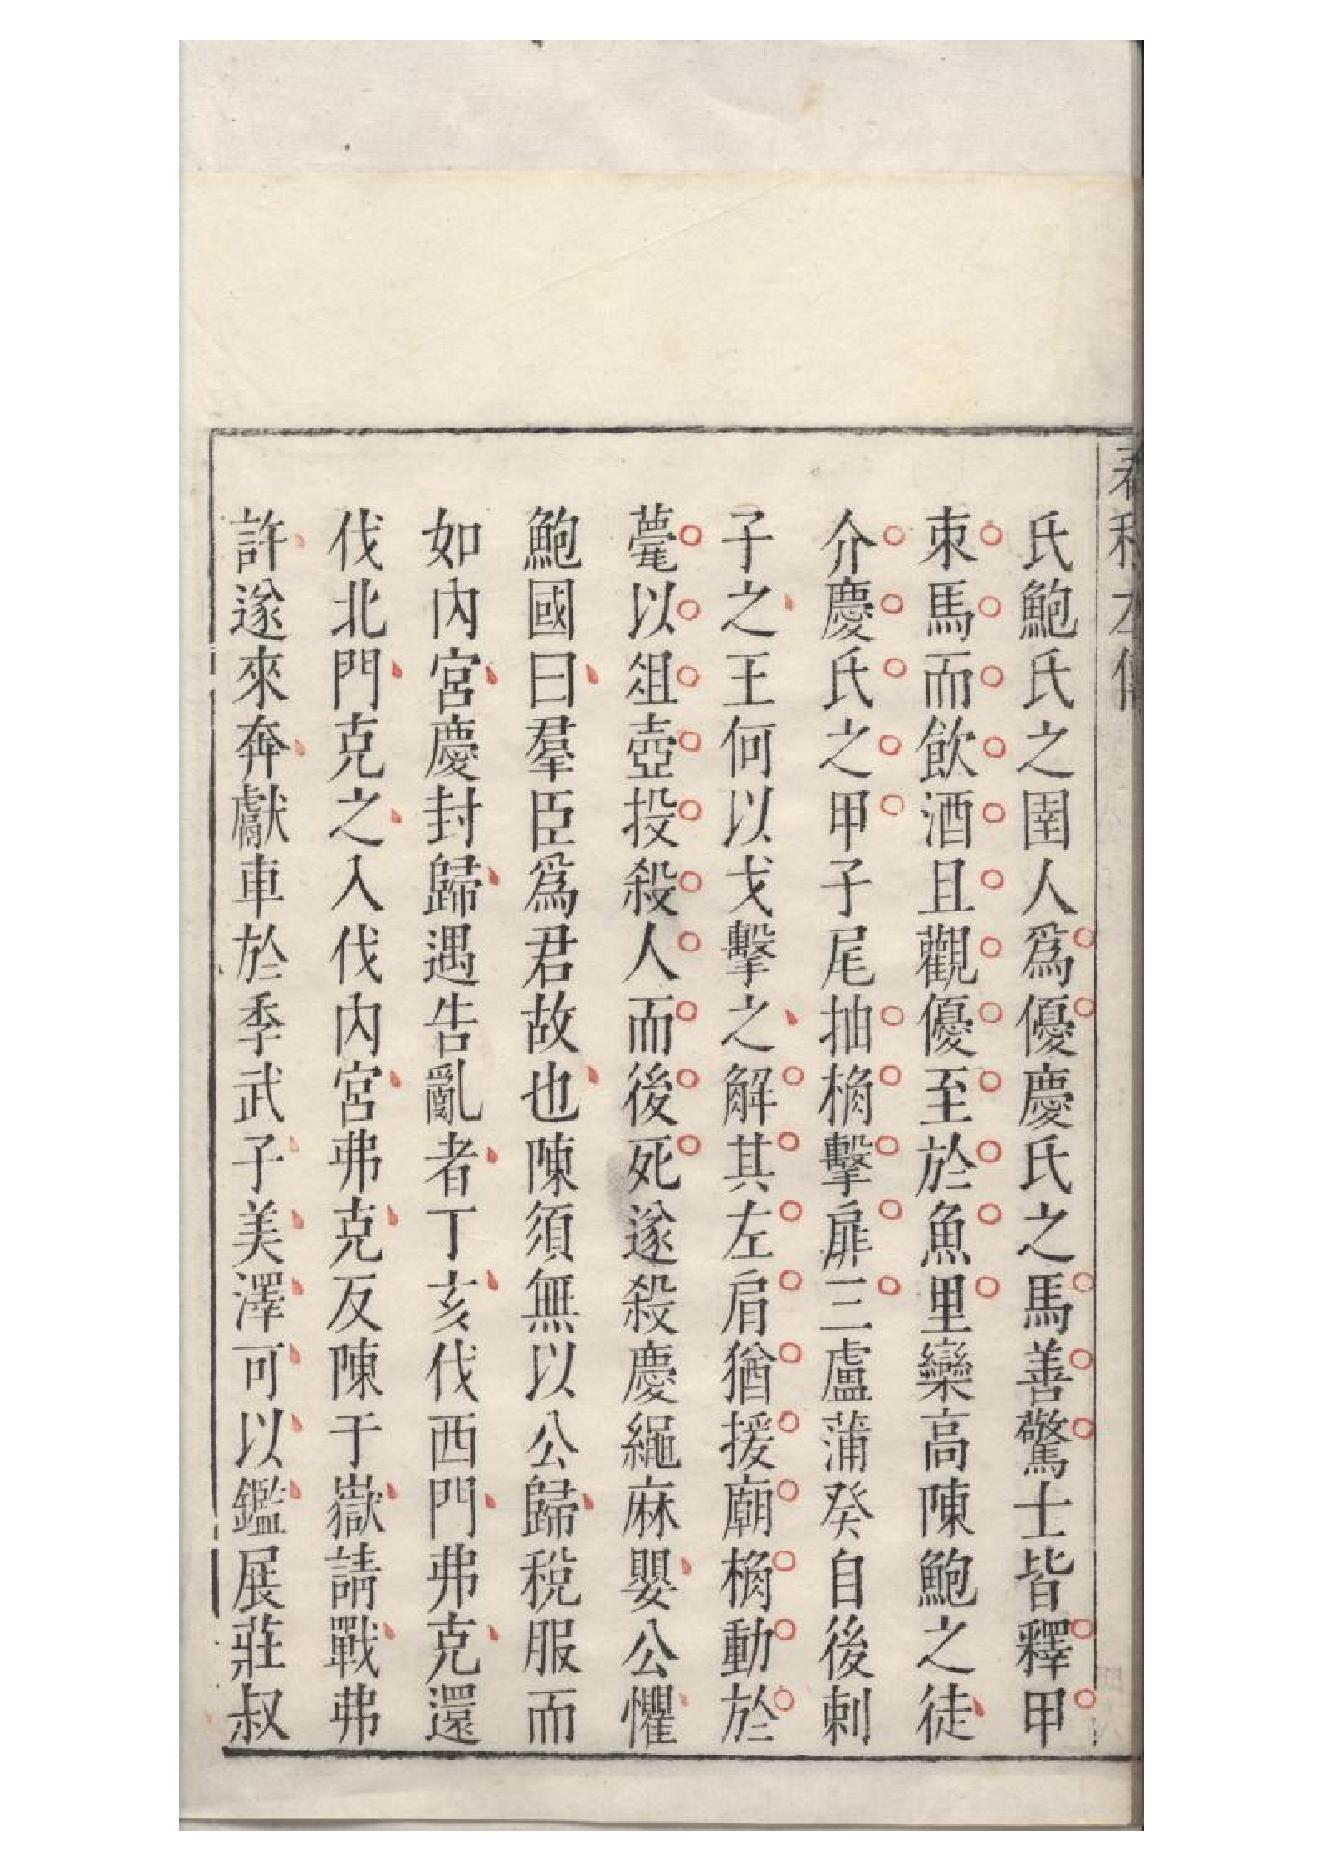 春秋左傳
氏鮑氏之圉人爲優慶氏之馬善驚士皆釋甲
束馬而飲酒且觀優至於魚里欒高陳鮑之徒
介慶氏之甲子尾抽桷擊扉三盧蒲癸自後刺
子之王何以戈擊之解其左肩猶援廟桷動於
甍以俎壺投殺人而後死遂殺慶繩麻嬰公懼
鮑國曰羣臣爲君故也陳須無以公歸稅服而
如內宮慶封歸遇告亂者丁亥伐西門弗克還
伐北門克之入伐內宮弗克反陳于嶽請戰弗
許遂來奔獻車於季武子美澤可以鑑展莊叔